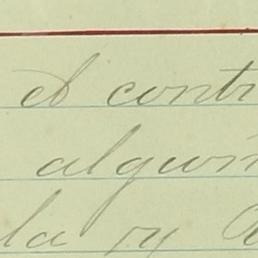 el contr
algun
la y